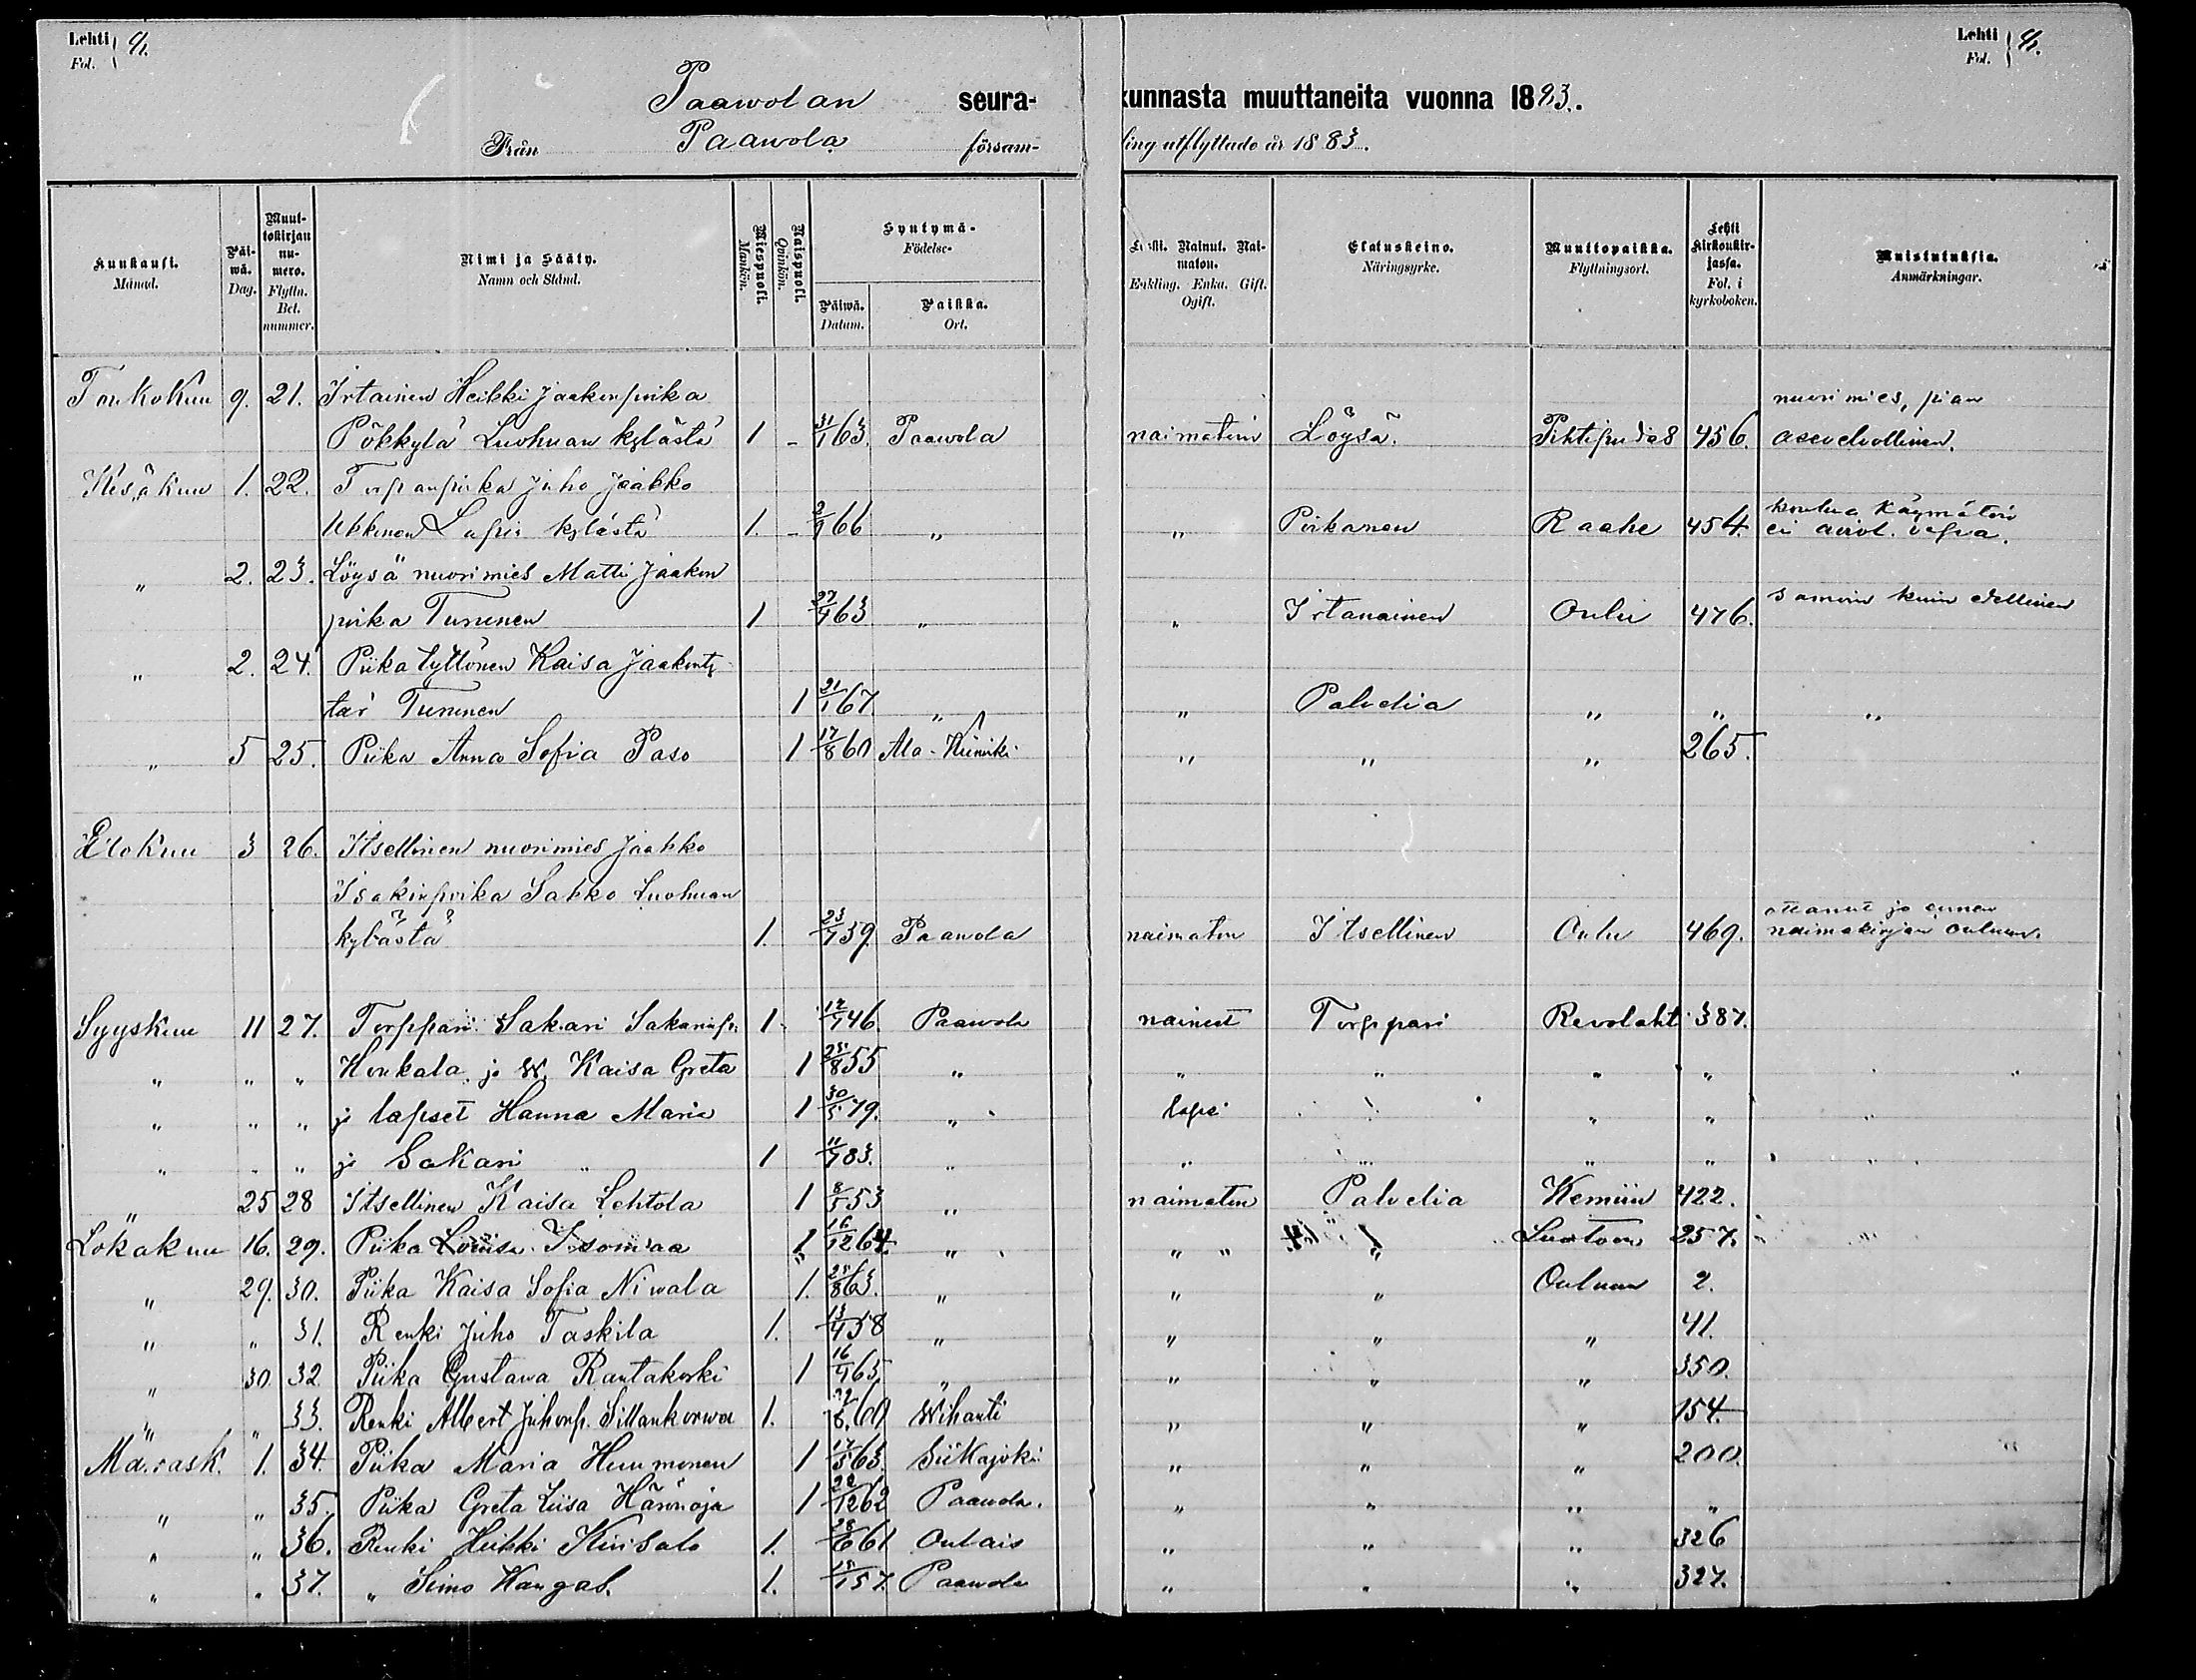 Lehti 4.
Fol.
Lehti 4.
Fol.
Paawolan seura- kunnasta muuttaneita vuonna 1883.
Från Paawola försam- ling utflyttade år 1883.
Kuukausi. Månad.
Päiwä. Dag.
Muuttokirjan numero. Flyttn. Bet. nummer.
Nimi ja Sääty. Namn och Stånd.
Miespuoli. Mankön.
Naispuoli. Qvinkön.
Syntymä- Födelse-
Päiwä. Datum.
Paikka. Ort.
Leski. Nainut. Naimaton. Enkling. Enka. Gift. Ogift.
Elatuskeino. Näringsyrke.
Muuttopaikka. Flyttningsort.
Lehti kirkonkirjassa. Fol. i kyrkoboken.
Muistutuksia. Anmärkningar.
Toukokuu 9. 21. Irtainen Heikki Jaakonpoika nuorimies, pian
Pökkylä Luohuan kylästä 1 - 31/1 63. Paawola naimatoin Löysä. Pihtipudas 456. asevelvollinen.
Kesäkuu 1. 22. Torpanpoika Juho Jaakko
Ukkonen Lapin kylästä 1. - 2/9 66 " " Poikanen Raahe 454. koulua käymätöin ei aviol. vapaa.
" 2. 23. Löysä nuorimies Matti Jaakon
poika Turunen 1 27/4 63 " " Irtanainen Oulu 476. samoin kuin edellinen
" 2. 24. Piika tyttönen Kaisa Jaakonty
tär Turunen 1 21/1 67 " " Palvelia " " "
" 5 25. Piika Anna Sofia Paso 1 17/8 60 Ala-Kiiminki " " " 265.
Elokuu 3 26. Itsellinen nuorimies Jaakko
Isakinpoika Sakko Luohuan
kylästä 1. 23/7 39 Paawola naimaton Itsellinen Oulu 469. ottanut jo ennen naimakirjan Ouluun.
Syyskuu 11 27. Torppari Sakari Sakarinp. 1. 12/1 46 Paawola nainut Torppari Revolahti 387.
" " " Honkala ja W. Kaisa Greta 1 25/8 55 " " " " "
" " " ja lapset Hanna Maria 1 30/5 79. " lapsi " "
" " " ja Sakari " 1 11/7 83. " " " " "
" 25 28 Itsellinen Kaisa Lehtola 1 8/5 53 " naimaton Palvelia Kemiin 422.
Lokakuu 16. 29. Piika Loviisa Isomaa 1 16/12 64. " " " " Luotoon 257.
" 29. 30. Piika Kaisa Sofia Niwala 1. 25/8 63. " " " Ouluun 2.
" " 31. Renki Juho Taskila 1. 13/4 58 " " " " 41.
" 30. 32 Piika Gustawa Rantakoski 1 16/4 65 " " " " 350.
" " 33. Renki Albert Juhonp. Sillankorwa 1. 22/8 60 Wihanti " " " 154.
Marrask. 1. 34. Piika Maria Huumonen 1 17/5 63. Siikajoki " " " 200.
" " 35. Piika Greta Liisa Härmoja 1 22/12 62 Paawola. " " " "
" " 36. Renki Heikki Kiiisalo 1. 28/6 61 Oulais " " " 326
" " 37. " Simo Kangas. 1. 15/1 57. Paawola " " " 327.